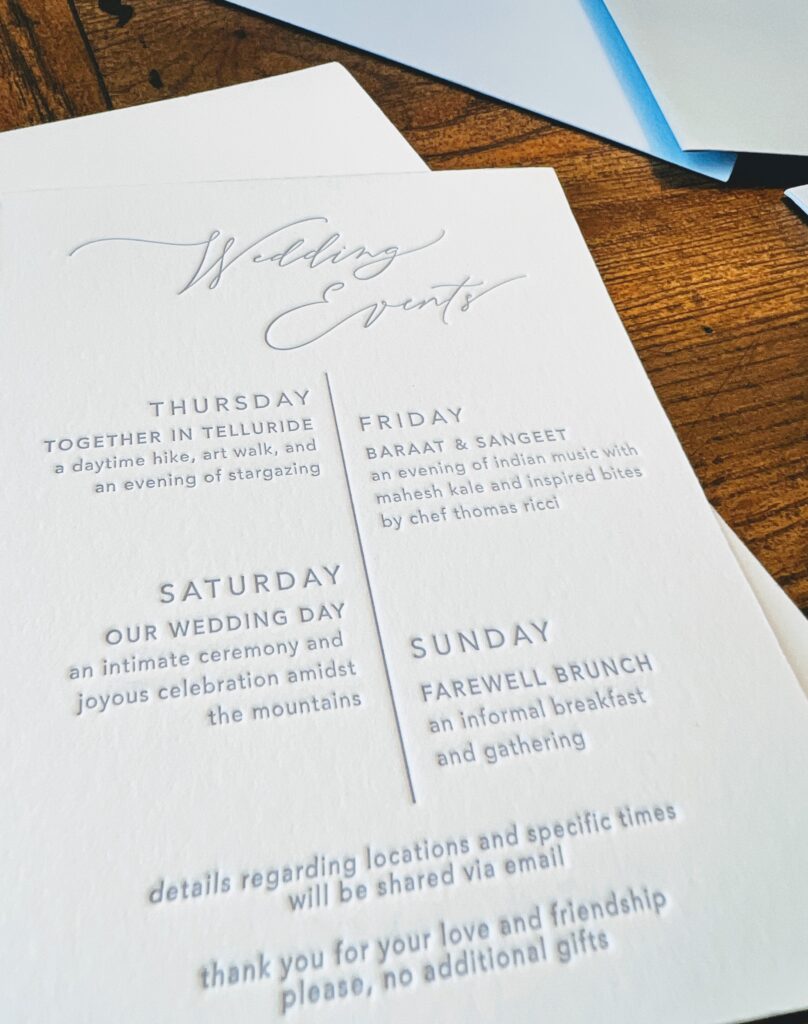 Wedding
Events
THURSDAY
TOGETHER IN TELLURIDE
a daytime hike, art walk, and
an evening of stargazing
FRIDAY
BARAAT & SANGEET
an evening of indian music with
mahesh kale and inspired bites
by chef thomas ricci
SATURDAY
OUR WEDDING DAY
an intimate ceremony and
joyous celebration amidst
the mountains
SUNDAY
FAREWELL BRUNCH
an informal breakfast
and gathering
details regarding locations and specific times
will be shared via email
thank you for your love and friendship
please, no additional gifts